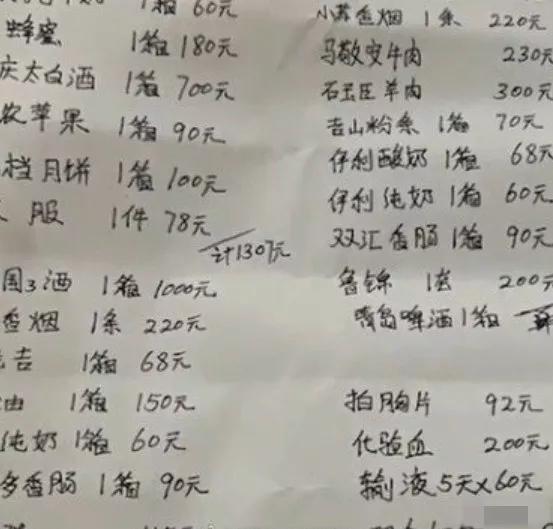 1箱 60元
蜂蜜 1箱 180元
庆太白酒 1箱 700元
苹果 1箱 90元
档月饼 1箱 100元
服 1件 78元
计1307元
国3酒 1箱 1000元
香烟 1条 220元
吉 1箱 68元
油 1箱 150元
纯奶 1箱 60元
多香肠 1箱 90元
小苏香烟 1条 220元
马敬安牛肉 230元
石玉臣羊肉 300元
吉山粉条 1箱 70元
伊利酸奶 1箱 68元
伊利纯奶 1箱 60元
双汇香肠 1箱 90元
鲁锦 1套 200元
青岛啤酒 1箱
拍胸片 92元
化验血 200元
输液 5天×60元